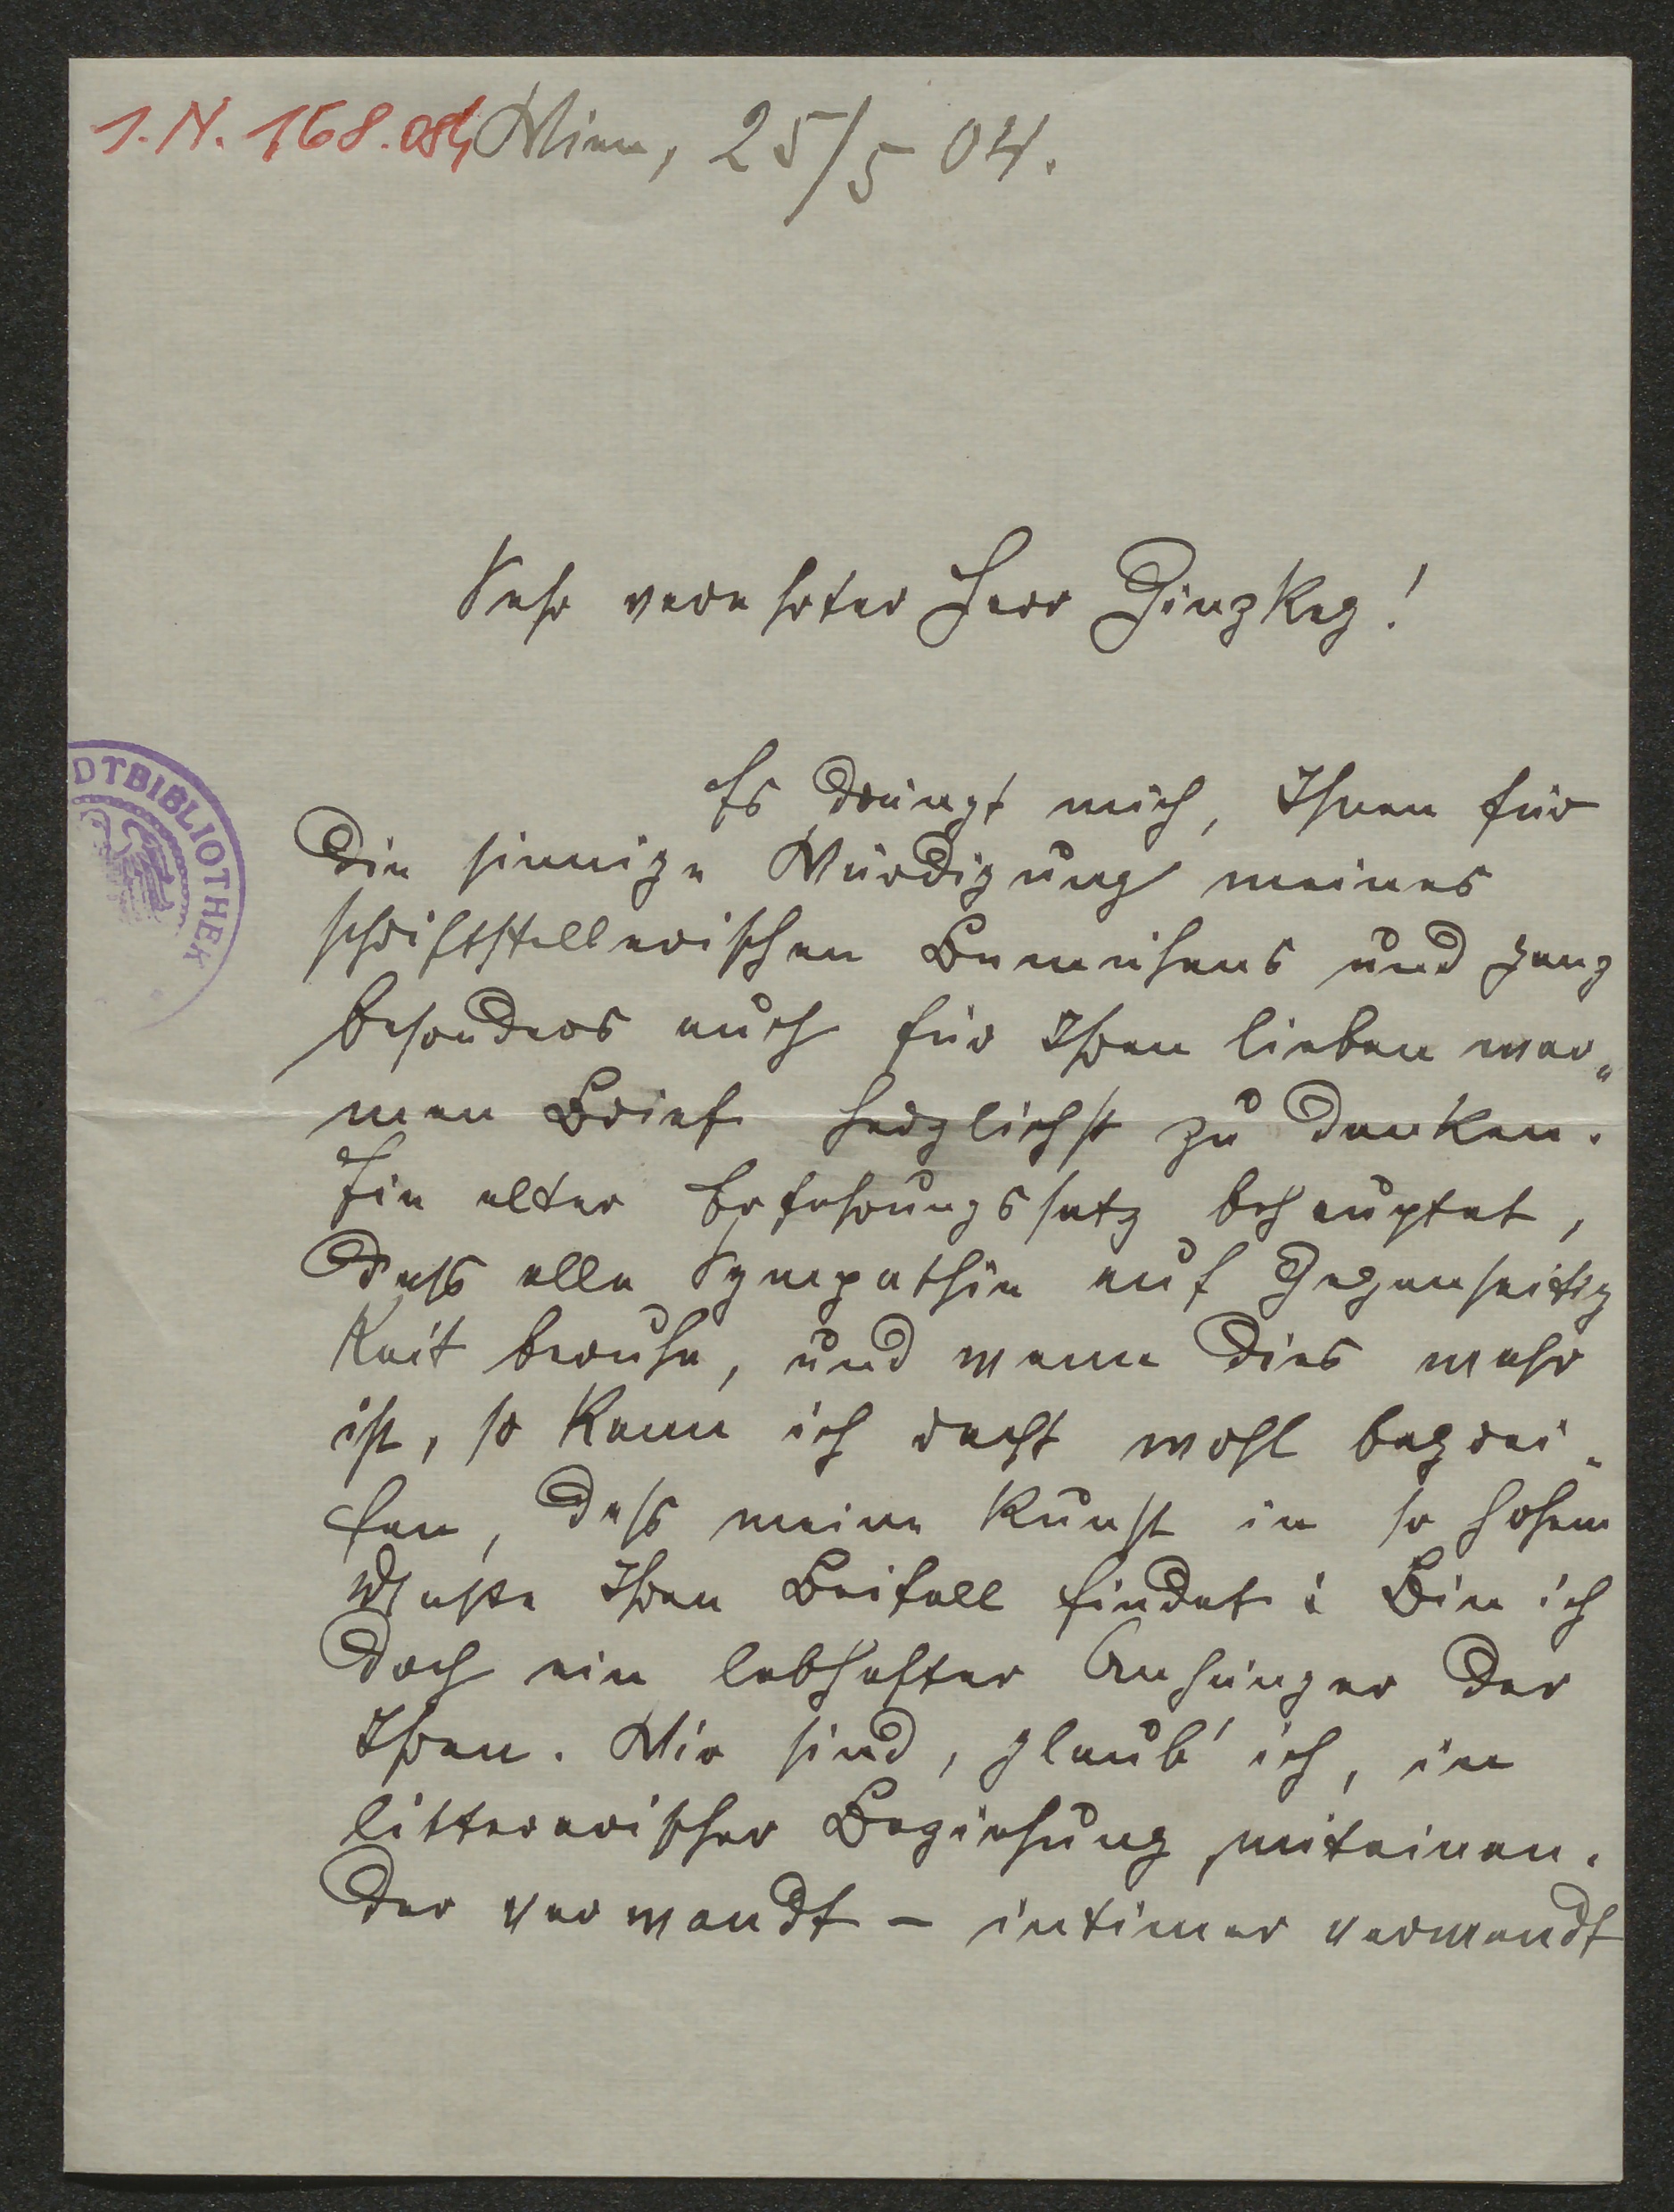 I.N. 168.084
Wien, 25/5 04.
Sehr verehrter Herr Ginzkey!
DTBIBLIOTHEK
Es drängt mich, Ihnen für
die sinnige Würdigung meines
schriftstellerischen Bemühens und ganz
besonders auch für Ihren lieben war„
men Brief herzlichst zu danken.
Ein alter Erfahrungssatz behauptet,
dass alle Sympathie auf Gegenseitig
keit beruhe, und wenn dies wahr
ist, so kann ich recht wohl begrei„
fen, dass meine Kunst in so hohem
Maße Ihren Beifall findet: Bin ich
doch ein lebhafter Anhänger der
Ihren. Wir sind, glaub' ich, in
litterarischer Beziehung miteinan„
der verwandt – intimer verwandt